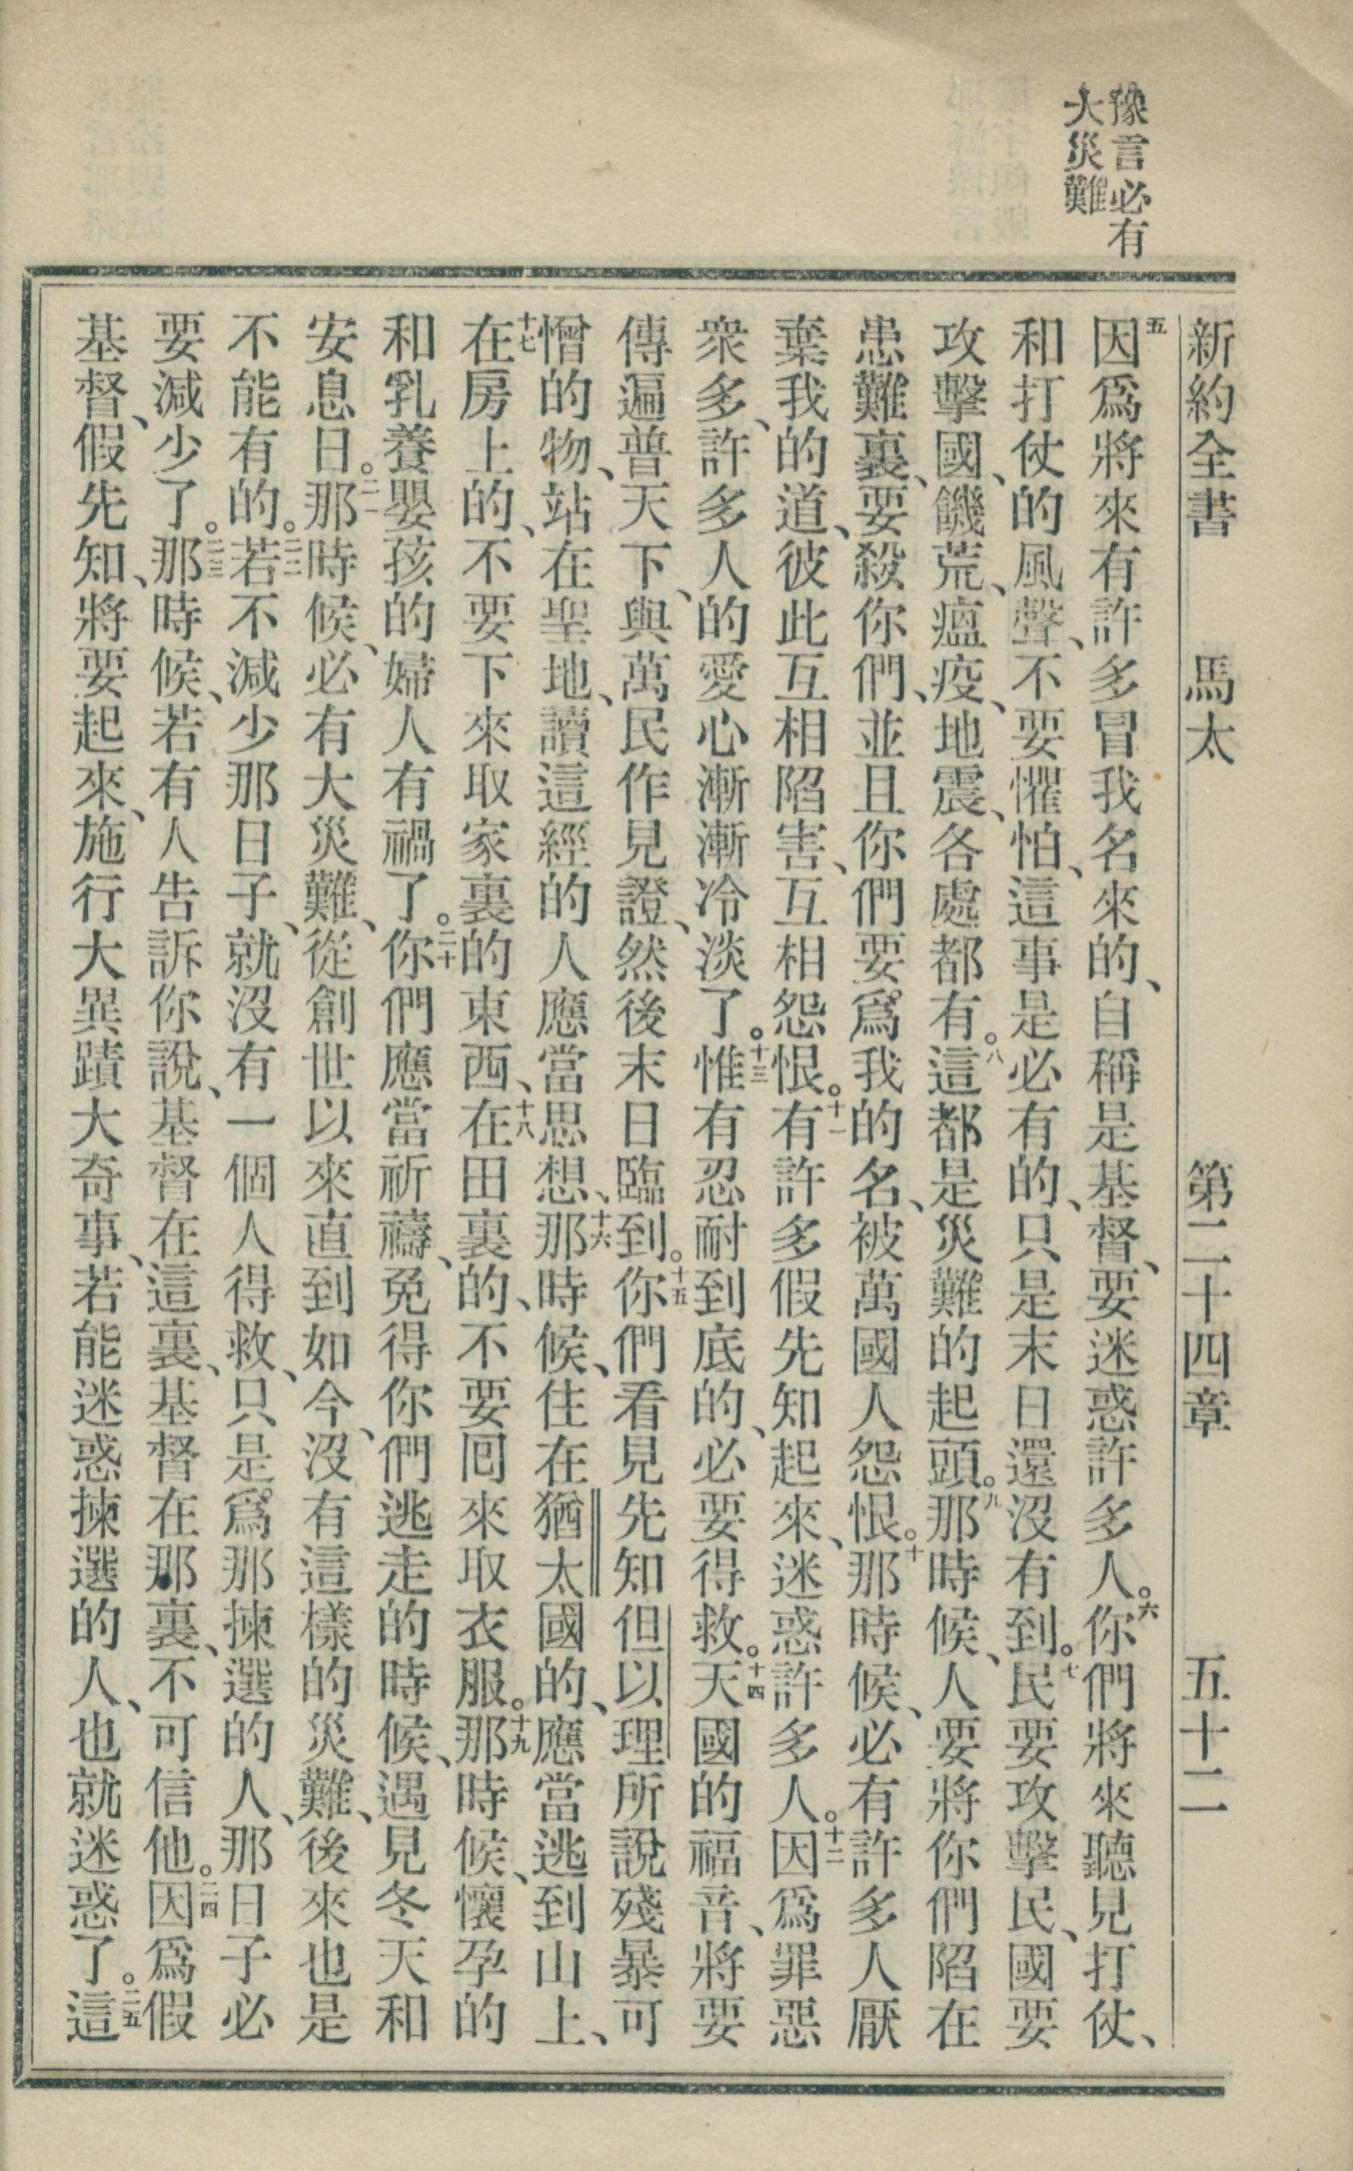 豫言必有
大災難
新約全書 馬太 第二十四章 五十二
五因爲將來有許多冒我名來的、自稱是基督、要迷惑許多人。六你們將來聽見打仗、
和打仗的風聲、不要懼怕、這事是必有的、只是末日還沒有到。七民要攻擊民、國要
攻擊國、饑荒、瘟疫、地震、各處都有。八這都是災難的起頭。九那時候、人要將你們陷在
患難裏、要殺你們、並且你們要爲我的名、被萬國人怨恨。十那時候、必有許多人厭
棄我的道、彼此互相陷害、互相怨恨。十一有許多假先知起來、迷惑許多人。十二因爲罪惡
衆多、許多人的愛心漸漸冷淡了。十三惟有忍耐到底的、必要得救。十四天國的福音、將要
傳遍普天下、與萬民作見證、然後末日臨到。十五你們看見先知但以理所說殘暴可
憎的物、站在聖地、讀這經的人應當思想、十六那時候、住在猶太國的、應當逃到山上、
十七在房上的、不要下來取家裏的東西、十八在田裏的、不要囘來取衣服。十九那時候、懷孕的
和乳養嬰孩的婦人有禍了。二十你們應當祈禱、免得你們逃走的時候、遇見冬天和
安息日。二一那時候、必有大災難、從創世以來直到如今、沒有這樣的災難、後來也是
不能有的。二二若不減少那日子、就沒有一個人得救、只是爲那揀選的人、那日子必
要減少了。二三那時候、若有人告訴你說、基督在這裏、基督在那裏、不可信他。二四因爲假
基督、假先知、將要起來、施行大異蹟大奇事、若能迷惑揀選的人、也就迷惑了。二五這